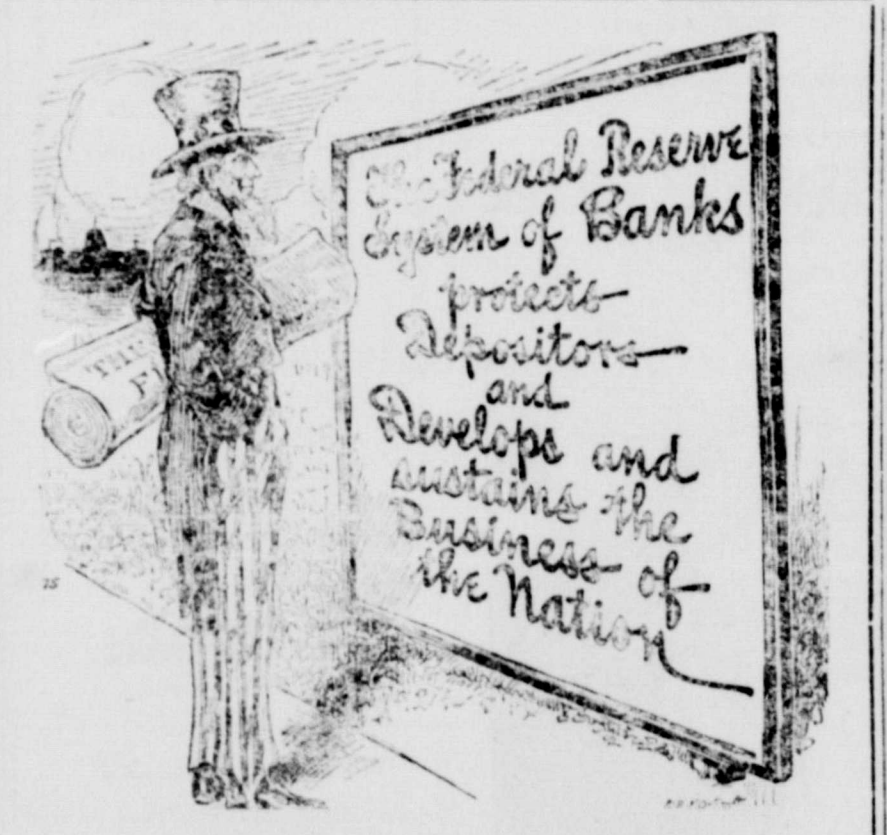 The Federal Reserve
System of Banks
protects
Depositors
and
Develops and
sustains the
Business of
the Nation
75